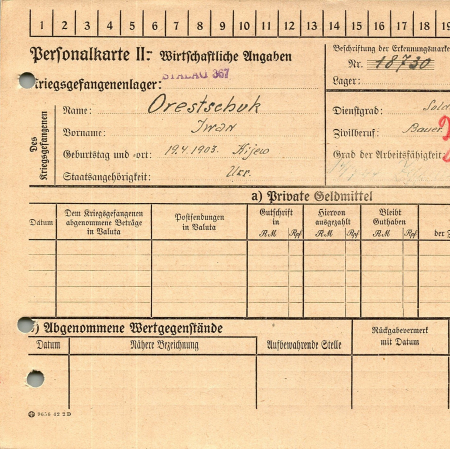 1 2 3 4 5 6 7 8 9 10 11 12 13 14 15 16 17 18 19
Personalkarte II: Wirtschaftliche Angaben
Beschriftung der Erkennungsmarke
Nr. 18730
STALAG 367
Kriegsgefangenenlager:
Lager:
Des Kriegsgefangenen
Name: Orestschuk
Dienstgrad: Sold
Vorname: Iwan
Zivilberuf: Bauer
Geburtstag und -ort: 19.4.1903. Kijew
Grad der Arbeitsfähigkeit
Staatsangehörigkeit: Ukr.
a) Private Geldmittel
Datum
Dem Kriegsgefangenen abgenommene Beträge in Valuta
Postsendungen in Valuta
Gutschrift in
RM Rpf
Hiervon ausgezahlt
RM Rpf
Bleibt Guthaben
RM Rpf
der
b) Abgenommene Wertgegenstände
Datum
Nähere Bezeichnung
Aufbewahrende Stelle
Rückgabevermerk mit Datum
9658 42 2 D